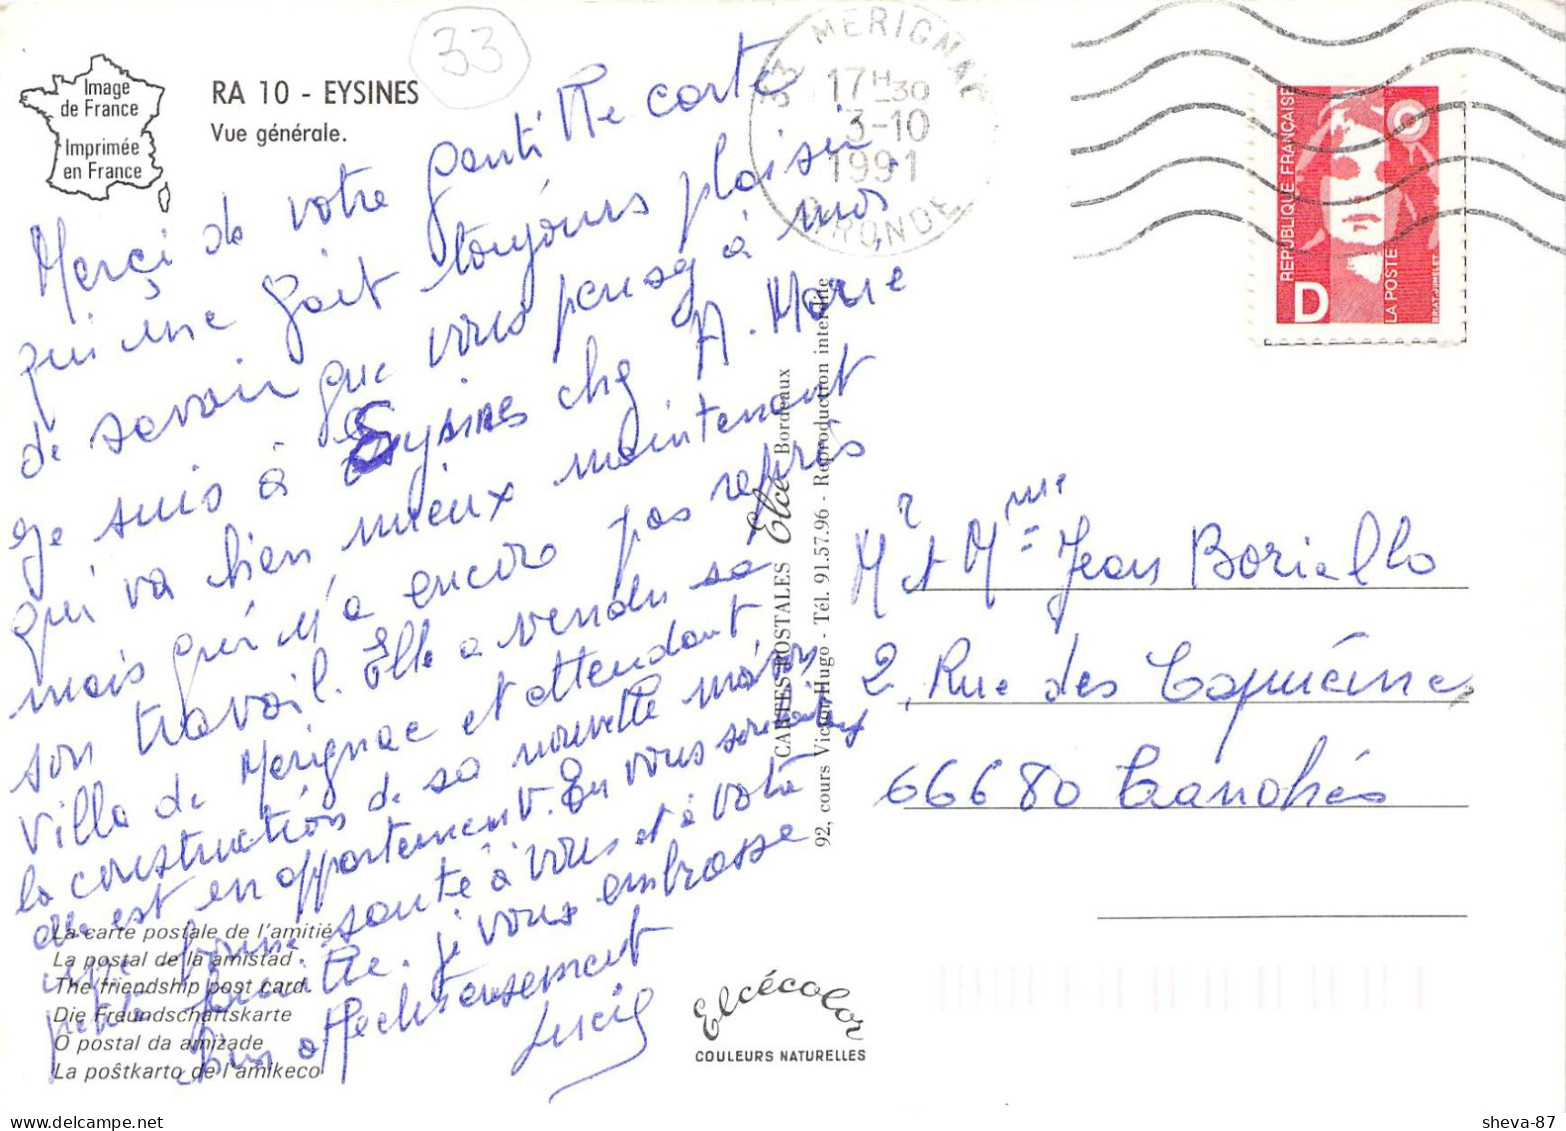 33
Image
de France
Imprimée
en France
RA 10 - EYSINES
Vue générale.
33 MERIGNAC
17H30
3-10
1991
GIRONDE
REPUBLIQUE FRANÇAISE
D
LA POSTE
BRIAT-JUMELET
Merçi de votre gentille carte
qui me fait toujours plaisir,
de savoir que vous pensez à moi,
je suis à Eysines chez A. Marie
qui va bien mieux maintenant
mais qui n'a encore pas repris
son travail. Elle a vendu sa
villa de Merignac et attendant
la construction de sa nouvelle maison
elle est en appartement. En vous souhaitant
une bonne santé à vous et à votre
petite famille. je vous embrasse
bien affectueusement
Lucie
CARTES POSTALES Elcé Bordeaux
92, cours Victor-Hugo - Tél. 91.57.96 - Reproduction interdite
Mr et Mme Jean Boriello
2, Rue des Capucines
66680 Canohès
La carte postale de l'amitié
La postal de la amistad
The friendship post card
Die Freundschaftskarte
O postal da amizade
La poŝtkarto de l'amikeco
Elcécolor
COULEURS NATURELLES
sheva-87